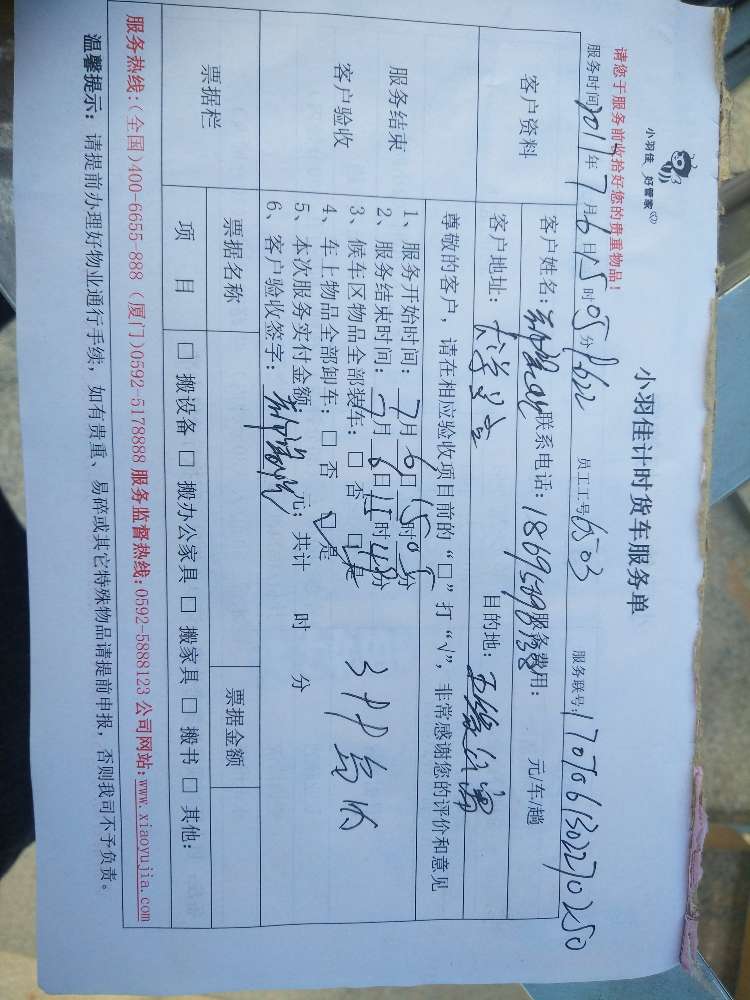 小羽佳 好管家
小羽佳计时货车服务单
请您于服务前收拾好您的贵重物品!
服务时间2017年7月6日15时05分 员工工号 服务联号:
客户资料
客户姓名: 联系电话: 服务费用: 元/车/趟
客户地址: 目的地:
尊敬的客户,请在相应验收项目前的“□”打“√”,非常感谢您的评价和意见
服务结束
客户验收
1、服务开始时间:7月6日15时05分
2、服务结束时间:7月6日15时48分
3、候车区物品全部装车:□ 否 □ 是
4、车上物品全部卸车:□ 否 □ 是
5、本次服务实付金额: 元;共计 时 分
6、客户验收签字:
票据栏
票据名称 票据金额
项 目 □ 搬设备 □ 搬办公家具 □ 搬家具 □ 搬书 □ 其他:
服务热线:(全国)400-6655-888 (厦门)0592-5178888 服务监督热线:0592-5888123 公司网站:www.xiaoyujia.com
温馨提示:请提前办理好物业通行手续,如有贵重、易碎或其它特殊物品请提前申报,否则我司不予负责。